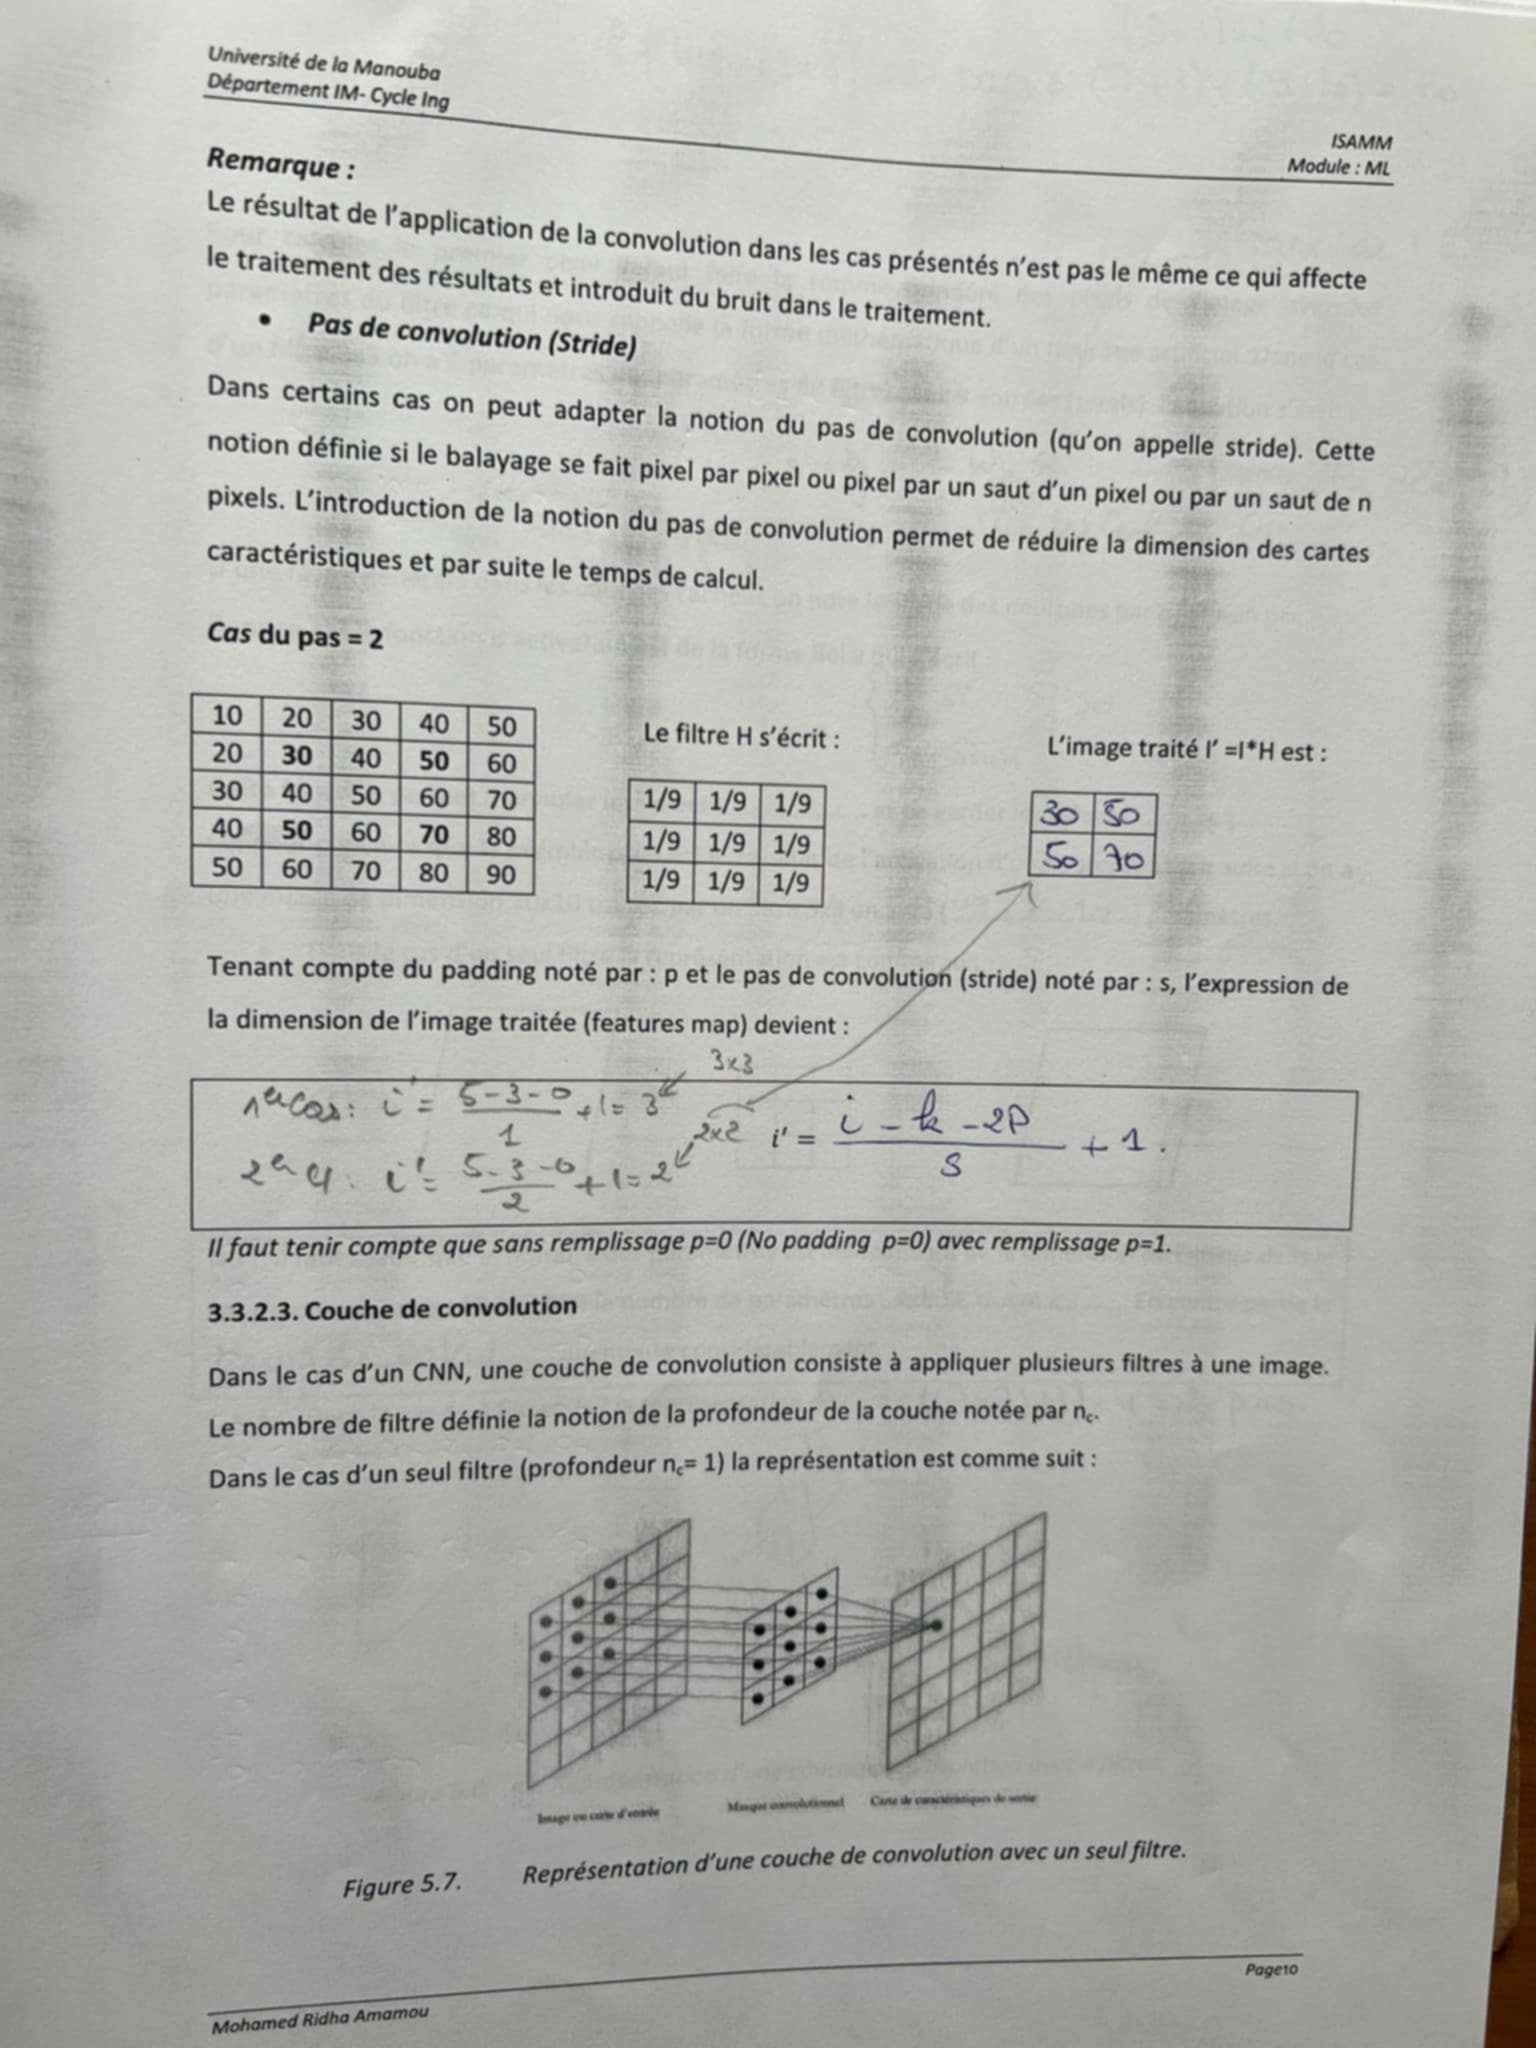 Université de la Manouba
Département IM- Cycle Ing
ISAMM
Module : ML
Remarque :
Le résultat de l'application de la convolution dans les cas présentés n'est pas le même ce qui affecte
le traitement des résultats et introduit du bruit dans le traitement.
• Pas de convolution (Stride)
Dans certains cas on peut adapter la notion du pas de convolution (qu'on appelle stride). Cette
notion définie si le balayage se fait pixel par pixel ou pixel par un saut d'un pixel ou par un saut de n
pixels. L'introduction de la notion du pas de convolution permet de réduire la dimension des cartes
caractéristiques et par suite le temps de calcul.
Cas du pas = 2
10 20 30 40 50
20 30 40 50 60
30 40 50 60 70
40 50 60 70 80
50 60 70 80 90
Le filtre H s'écrit :
1/9 1/9 1/9
1/9 1/9 1/9
1/9 1/9 1/9
L'image traité I' =I*H est :
30 50
50 70
Tenant compte du padding noté par : p et le pas de convolution (stride) noté par : s, l'expression de
la dimension de l'image traitée (features map) devient :
3x3
1er cas : i' = (5-3-0)/1 + 1 = 3
2x2
2e : i' = (5-3-0)/2 + 1 = 2
i' = (i - k - 2P)/s + 1 .
Il faut tenir compte que sans remplissage p=0 (No padding p=0) avec remplissage p=1.
3.3.2.3. Couche de convolution
Dans le cas d'un CNN, une couche de convolution consiste à appliquer plusieurs filtres à une image.
Le nombre de filtre définie la notion de la profondeur de la couche notée par nc.
Dans le cas d'un seul filtre (profondeur nc= 1) la représentation est comme suit :
Image ou carte d'entrée
Masque convolutionnel
Carte de caractéristiques de sortie
Figure 5.7. Représentation d'une couche de convolution avec un seul filtre.
Page10
Mohamed Ridha Amamou